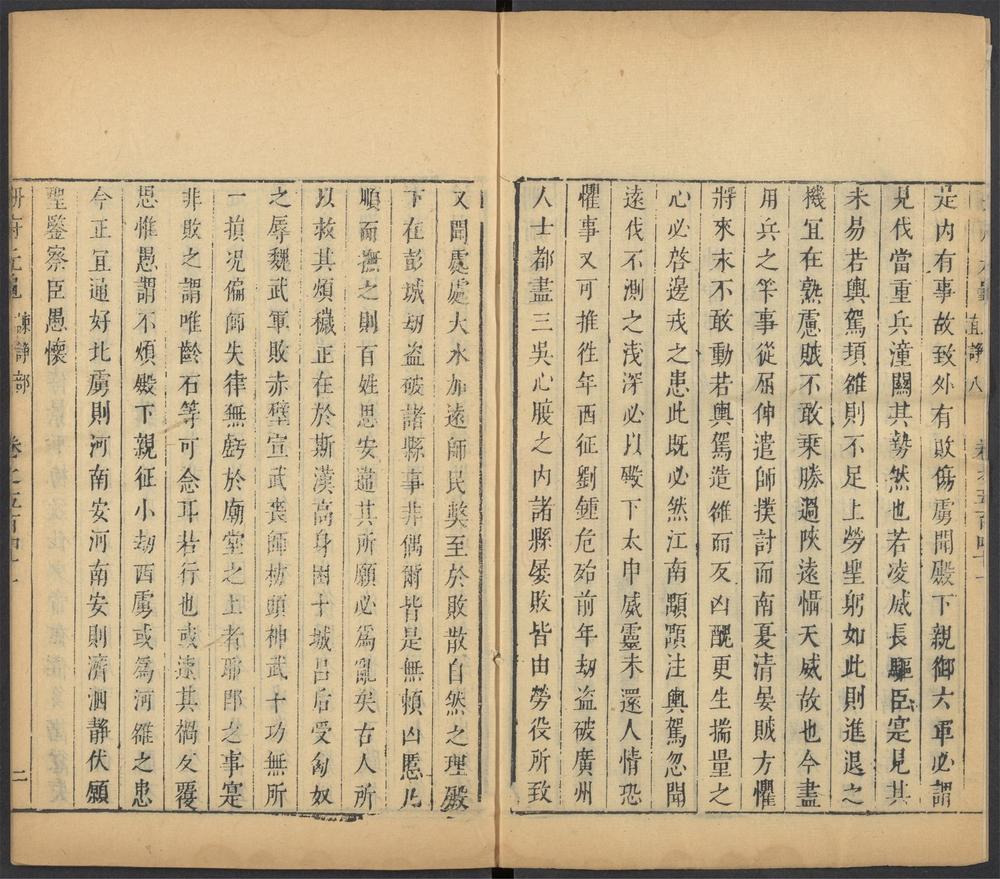 直諍八
是内有事故致外有敗傷虜聞殿下親御六軍必謂
見伐當重兵潼關其勢然也若凌威長驅臣寔見其
未易若輿駕頓雒則不足上勞聖躬如此則進退之
機宜在熟慮賊不敢乘勝過陜遠懾天威故也今盡
用兵之筭事從屈伸遣師撲討而南夏清晏賊方懼
將來末不敢動若輿駕造雒而反凶醜更生揣量之
心必啓邊戎之患此既必然江南顒顒注輿駕忽聞
遠伐不測之浅深必以殿下太申威靈未還人情恐
懼事又可推徃年西征劉鍾危殆前年刼盗破廣州
人士都盡三吳心腹之内諸縣屡敗皆由勞役所致
又聞處處大水加遠師民獘至於敗散自然之理殿
下在彭城刼盗破諸縣事非偶爾皆是無頼凶慝凡
順而撫之則百姓思安違其所願必爲亂矣古人所
以救其煩穢正在於斯漢高身困十城吕后受匈奴
之辱魏武軍敗赤壁宣武喪師枋頭神武十功無所
一損况偏師失律無虧於廟堂之上者耶卽之事寔
非敗之謂唯齡石等可念耳若行也或速其禍反覆
思惟愚謂不煩殿下親征小刼西虜或爲河雒之患
今正宜通好北虜則河南安河南安則濟泗静伏願
聖鑒察臣愚懷
册府元龜 諫諍部 卷之五百四十一 二